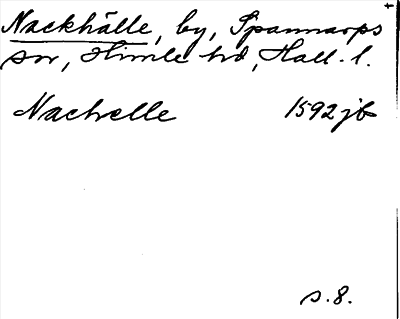 Nackhälle, by, Spannarps
sn, Himle hd, Hall. l.
Nackelle 1592 jb
s. 8.